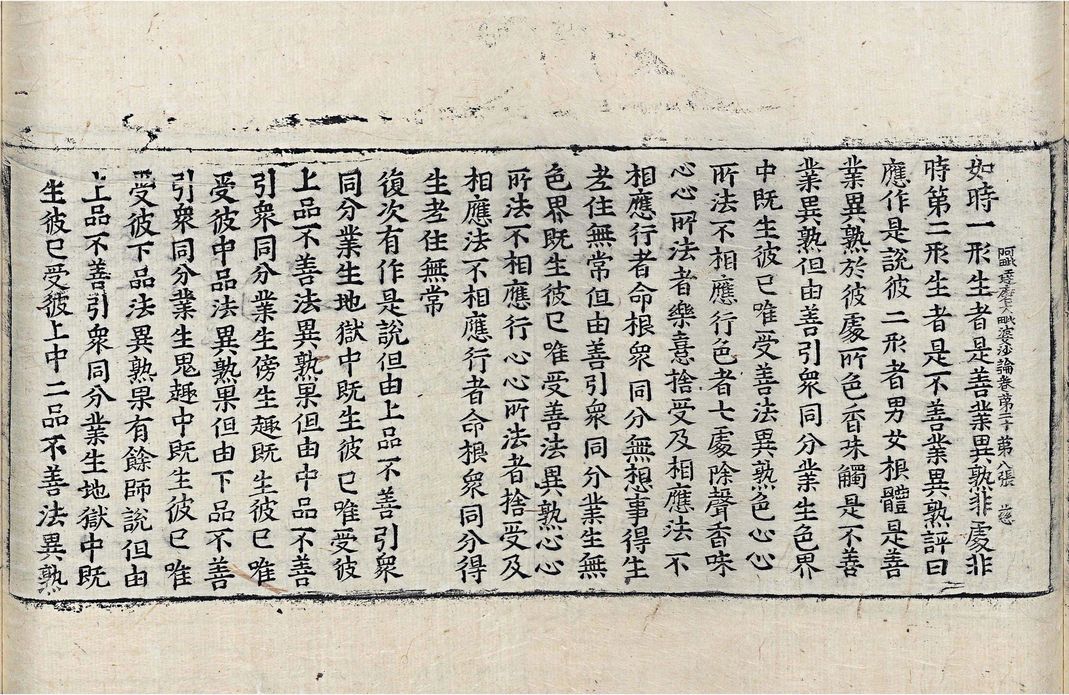 阿毗達磨大毗婆沙論卷第二十 第八張 慈
如時一形生者是善業異熟非處非
時第二形生者是不善業異熟評曰
應作是說彼二形者男女根體是善
業異熟於彼處所色香味觸是不善
業異熟但由善引衆同分業生色界
中既生彼已唯受善法異熟色心心
所法不相應行色者七處除聲香味
心心所法者樂憙捨受及相應法不
相應行者命根衆同分無想事得生
老住無常但由善引衆同分業生無
色界既生彼已唯受善法異熟心心
所法不相應行心心所法者捨受及
相應法不相應行者命根衆同分得
生老住無常
復次有作是說但由上品不善引衆
同分業生地獄中既生彼已唯受彼
上品不善法異熟果但由中品不善
引衆同分業生傍生趣既生彼已唯
受彼中品法異熟果但由下品不善
引衆同分業生鬼趣中既生彼已唯
受彼下品法異熟果有餘師說但由
上品不善引衆同分業生地獄中既
生彼已受彼上中二品不善法異熟